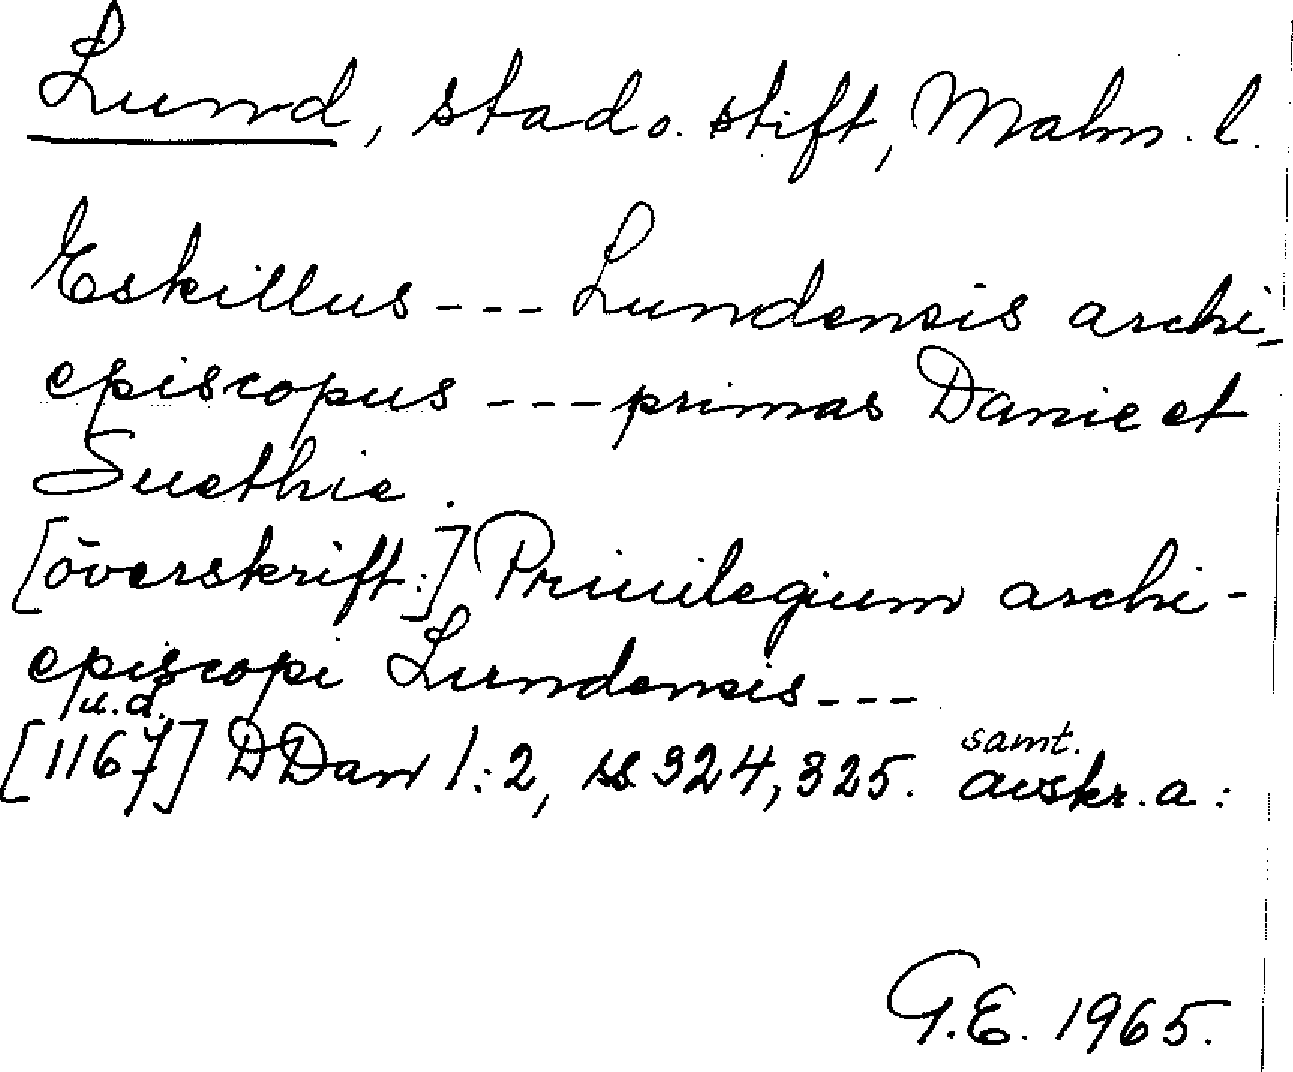 Lund, stad o. stift, Malm. l.
Eskillus --- Lundensis archi-
episcopus --- primas Danie et
Suethie.
[överskrift:] Priuilegium archi-
episcopi Lundensis ---
u.d.
[1167] DDan 1:2, ss 324, 325. samt. avskr. a:
G.E. 1965.